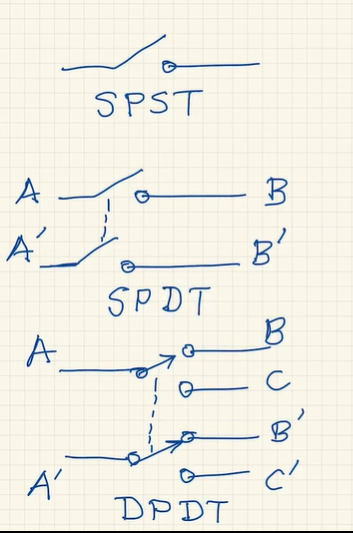 SPST
A B
A' B'
SPDT
A B
C
B'
A' C'
DPDT